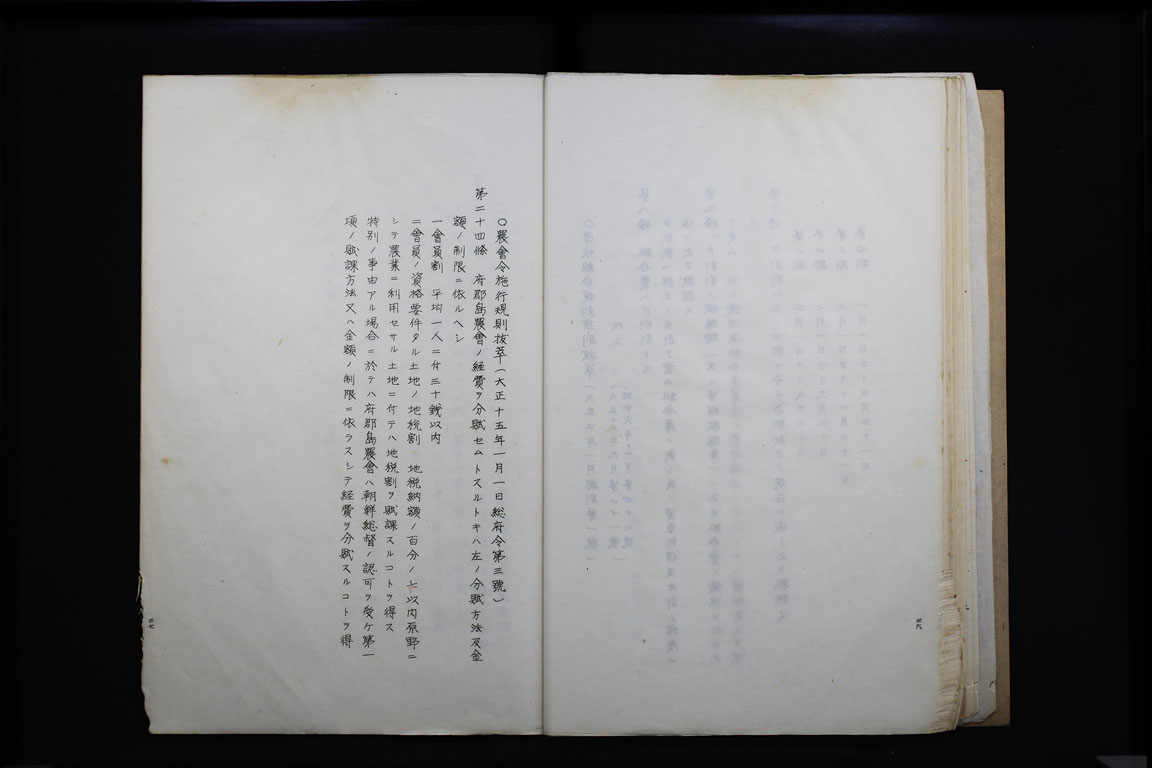 三六
〇農會令施行規則抜萃(大正十五年一月一日総府令第三號)
第二十四條 府郡島農會ノ経費ヲ分賦セムトスルトキハ左ノ分賦方法及金
額ノ制限ニ依ルヘシ
一會員割 平均一人ニ付三十銭以内
二會員ノ資格要件タル土地ノ地税割 地税納額ノ百分ノ七以内原野ニ
シテ農業ニ利用セサル土地ニ付テハ地税割ヲ賦課スルコトヲ得ス
特別ノ事由アル場合ニ於テハ府郡島農會ハ朝鮮総督ノ認可ヲ受ケ第一
項ノ賦課方法又ハ金額ノ制限ニ依ラスシテ経費ヲ分賦スルコトヲ得
三七